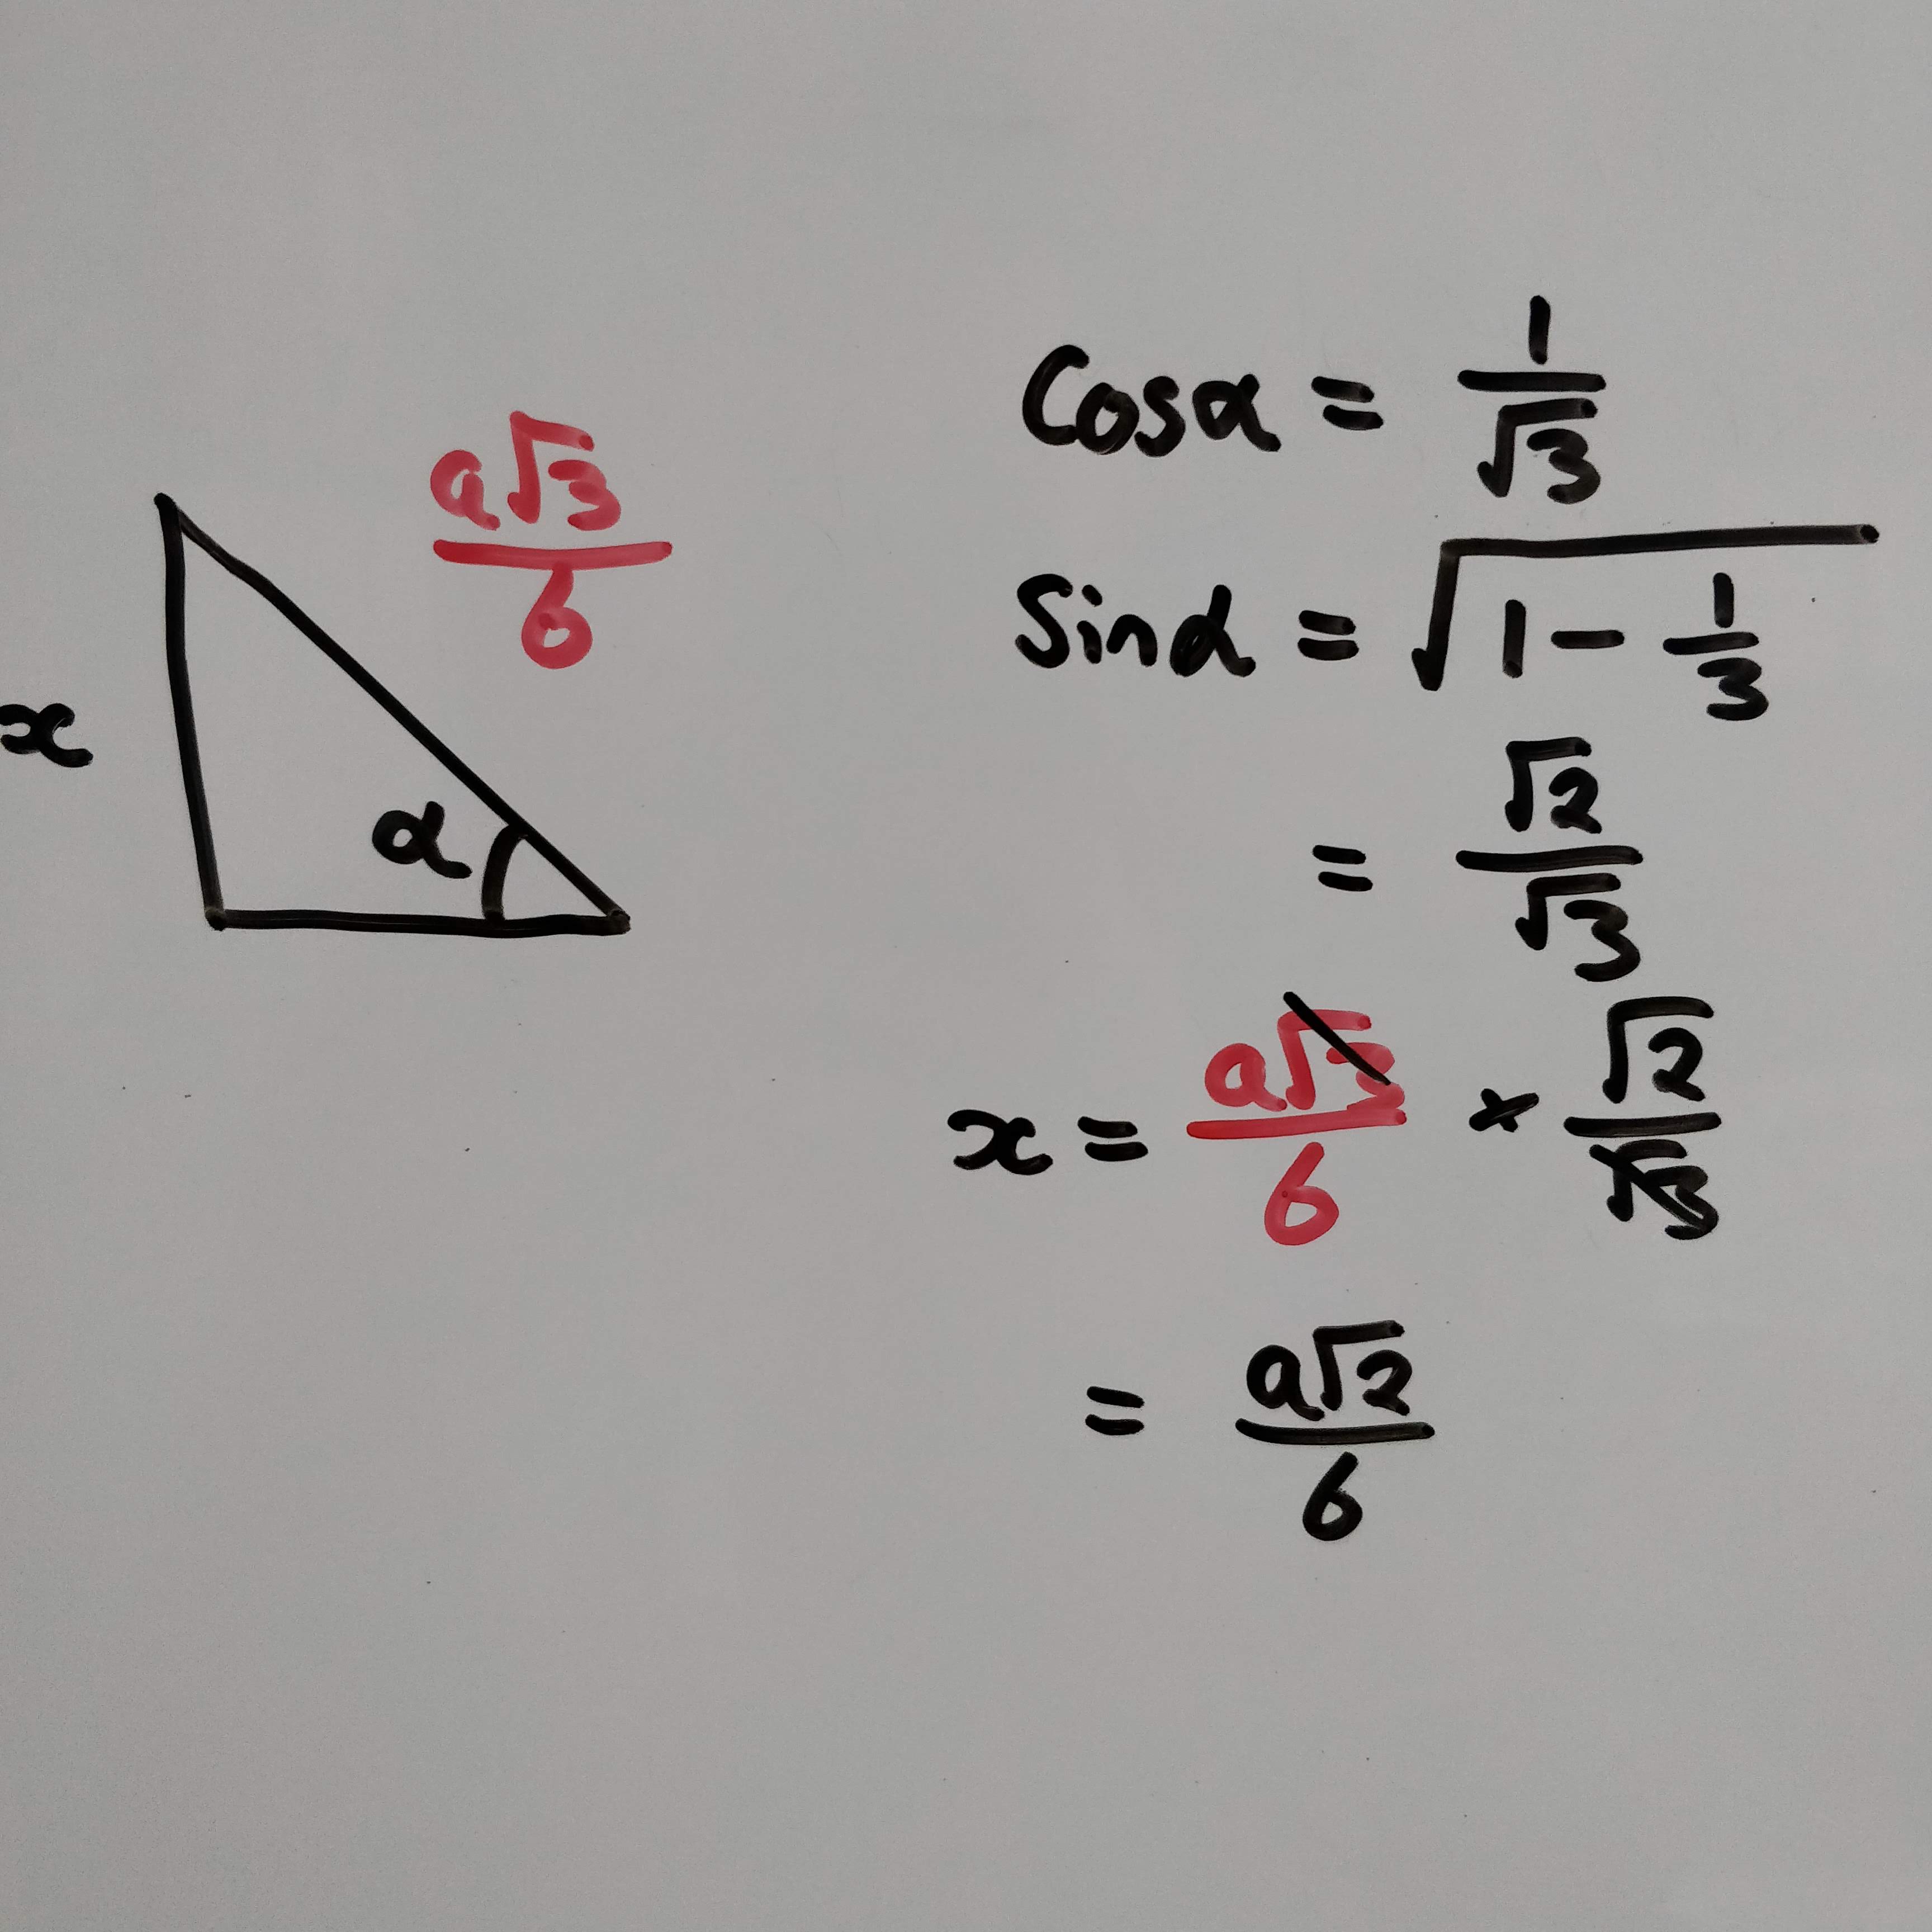 a√3/6
x
α
Cosα = 1/√3
Sinα = √(1 - 1/3)
= √2/√3
x = a√3/6 × √2/√3
= a√2/6